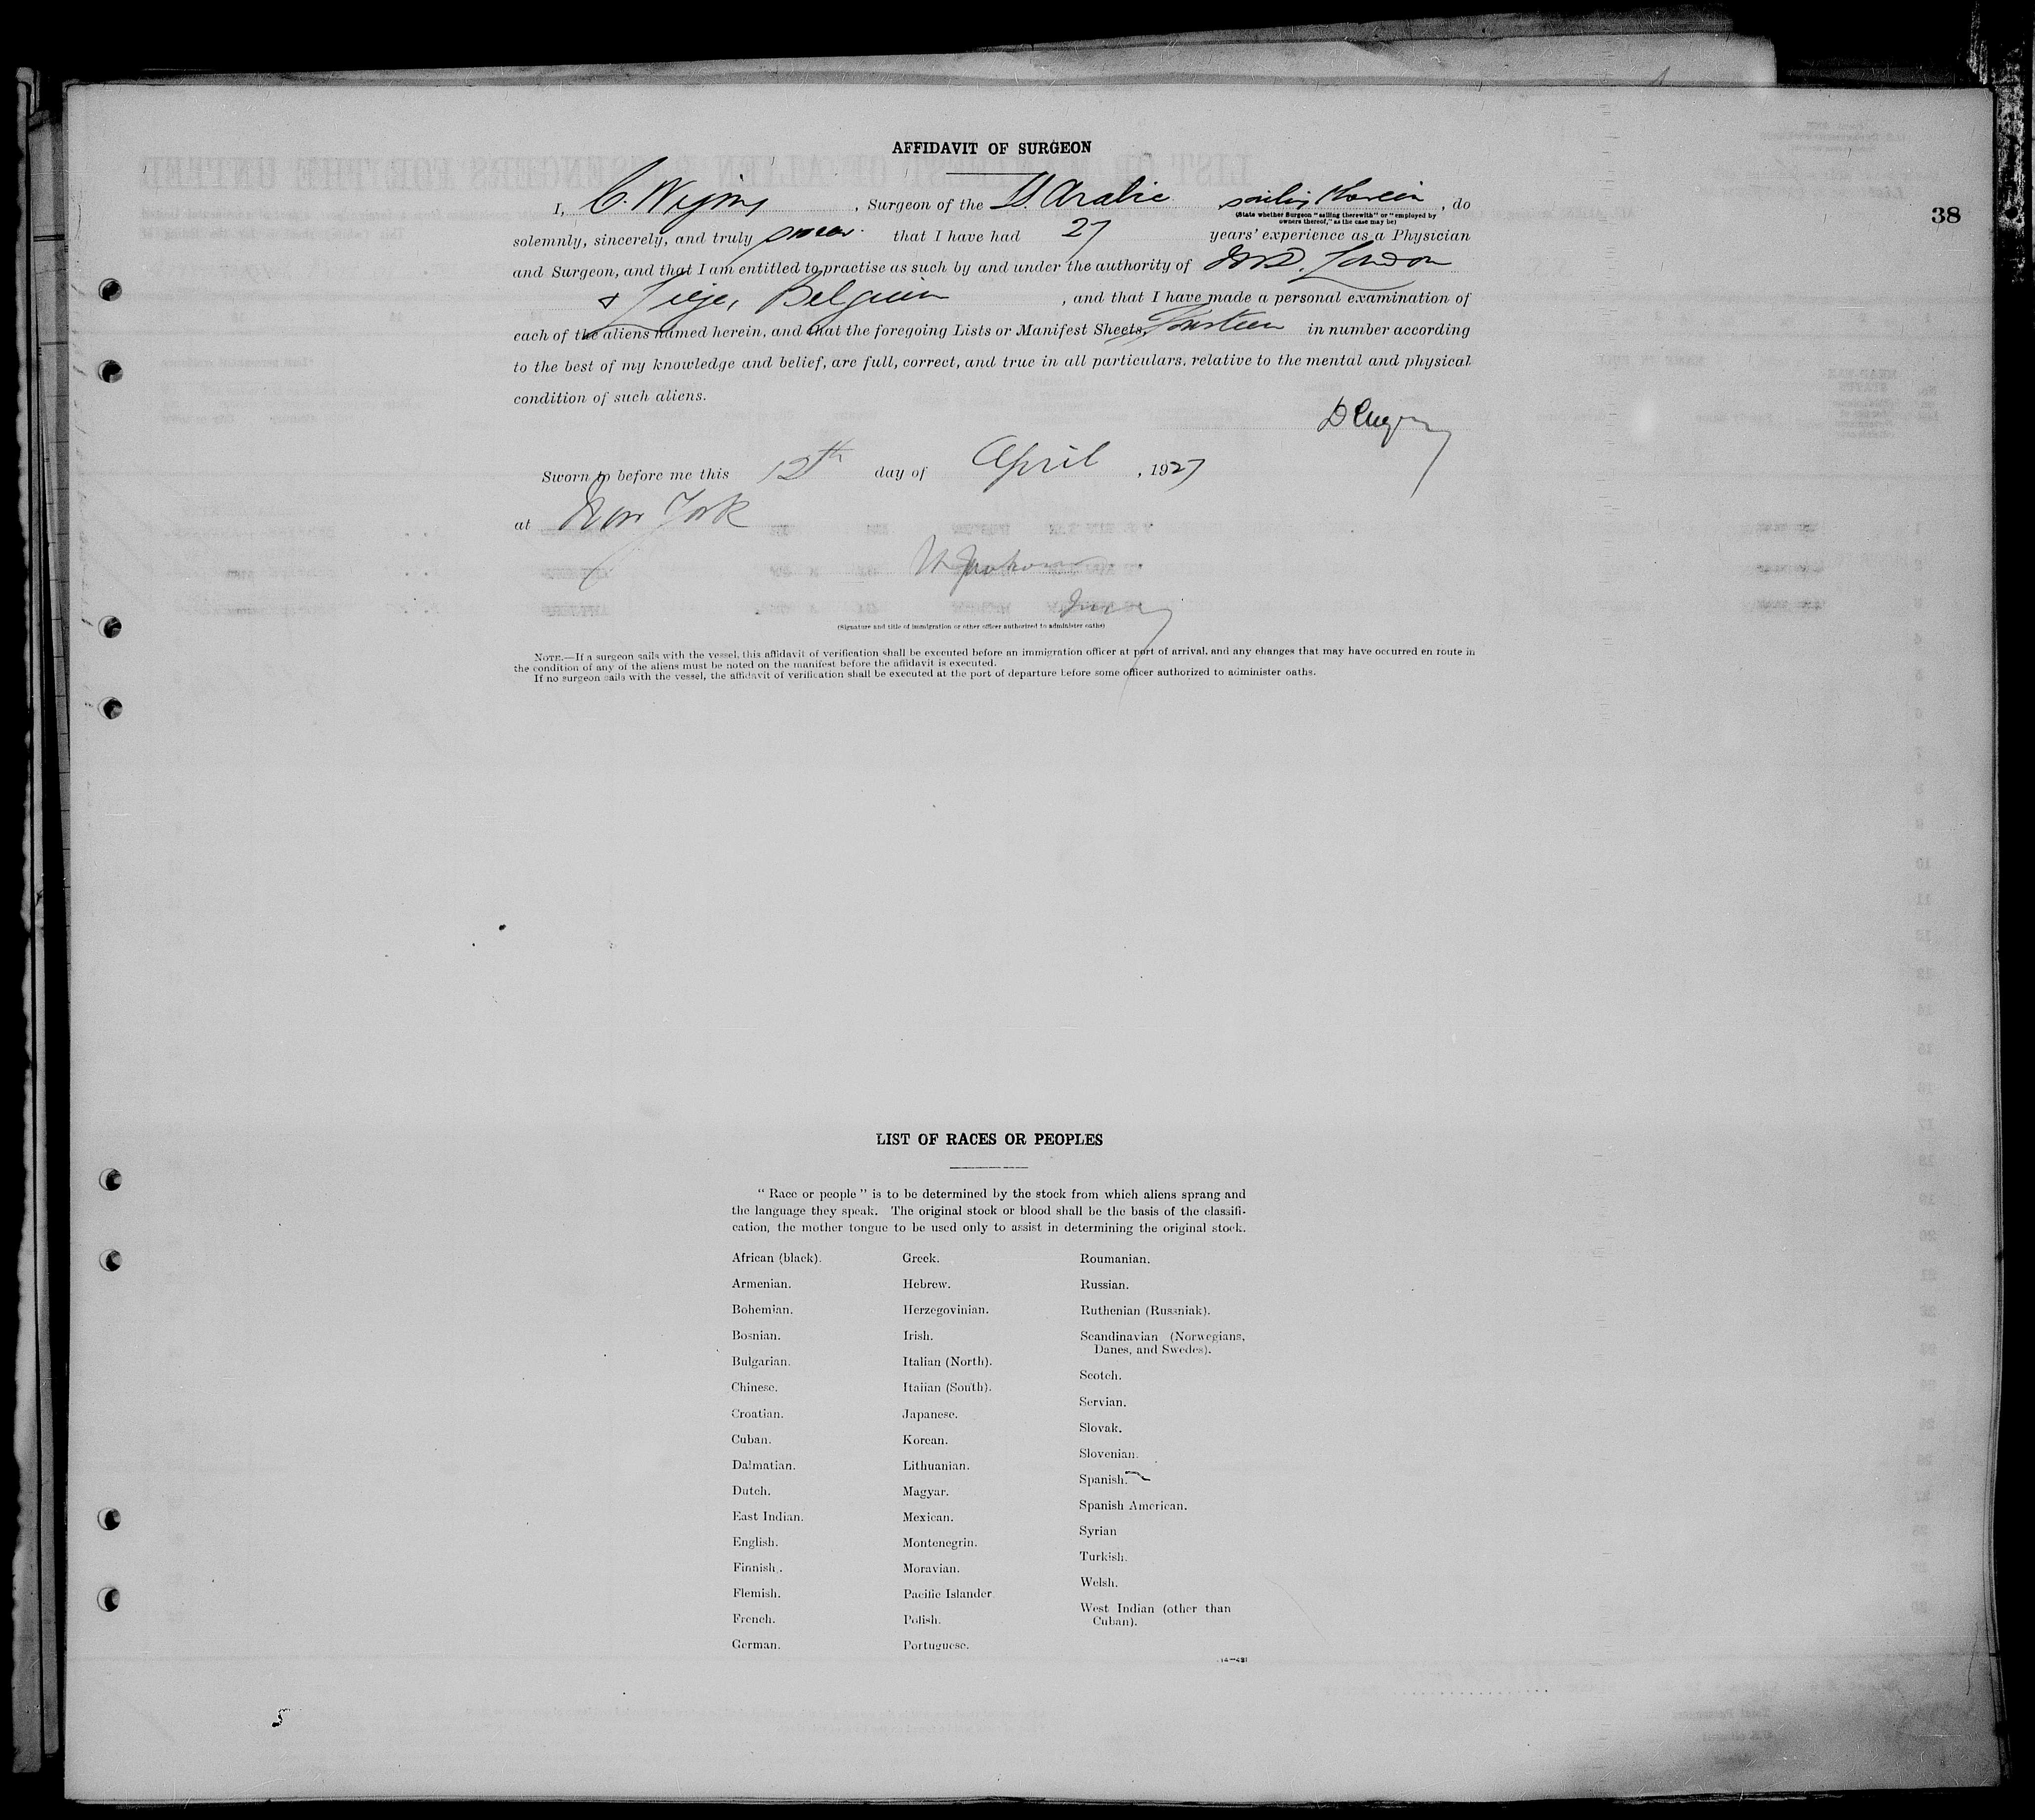 AFFIDAVIT OF SURGEON
I, C. , Surgeon of the S. Arabic sailing therein, do
(State whether Surgeon "sailing therewith" or "employed by
owners thereof," as the case may be)
38
solemnly, sincerely, and truly swear that I have had 27 years' experience as a Physician
and Surgeon, and that I am entitled to practise as such by and under the authority of London
& Liege, Belgium, and that I have made a personal examination of
each of the aliens named herein, and that the foregoing Lists or Manifest Sheets, fourteen in number according
to the best of my knowledge and belief, are full, correct, and true in all particulars, relative to the mental and physical
condition of such aliens.
Sworn to before me this 12th day of April, 1927
at New York
(Signature and title of immigration or other officer authorized to administer oaths)
NOTE.—If a surgeon sails with the vessel, this affidavit of verification shall be executed before an immigration officer at port of arrival, and any changes that may have occurred en route in
the condition of any of the aliens must be noted on the manifest before the affidavit is executed.
If no surgeon sails with the vessel, the affidavit of verification shall be executed at the port of departure before some officer authorized to administer oaths.
LIST OF RACES OR PEOPLES
"Race or people" is to be determined by the stock from which aliens sprang and
the language they speak. The original stock or blood shall be the basis of the classifi-
cation, the mother tongue to be used only to assist in determining the original stock.
African (black).
Armenian.
Bohemian.
Bosnian.
Bulgarian.
Chinese.
Croatian.
Cuban.
Dalmatian.
Dutch.
East Indian.
English.
Finnish.
Flemish.
French.
German.
Greek.
Hebrew.
Herzegovinian.
Irish.
Italian (North).
Italian (South).
Japanese.
Korean.
Lithuanian.
Magyar.
Mexican.
Montenegrin.
Moravian.
Pacific Islander.
Polish.
Portuguese.
Roumanian.
Russian.
Ruthenian (Russniak).
Scandinavian (Norwegians,
Danes, and Swedes).
Scotch.
Servian.
Slovak.
Slovenian.
Spanish.
Spanish American.
Syrian
Turkish.
Welsh.
West Indian (other than
Cuban).
14—431
5